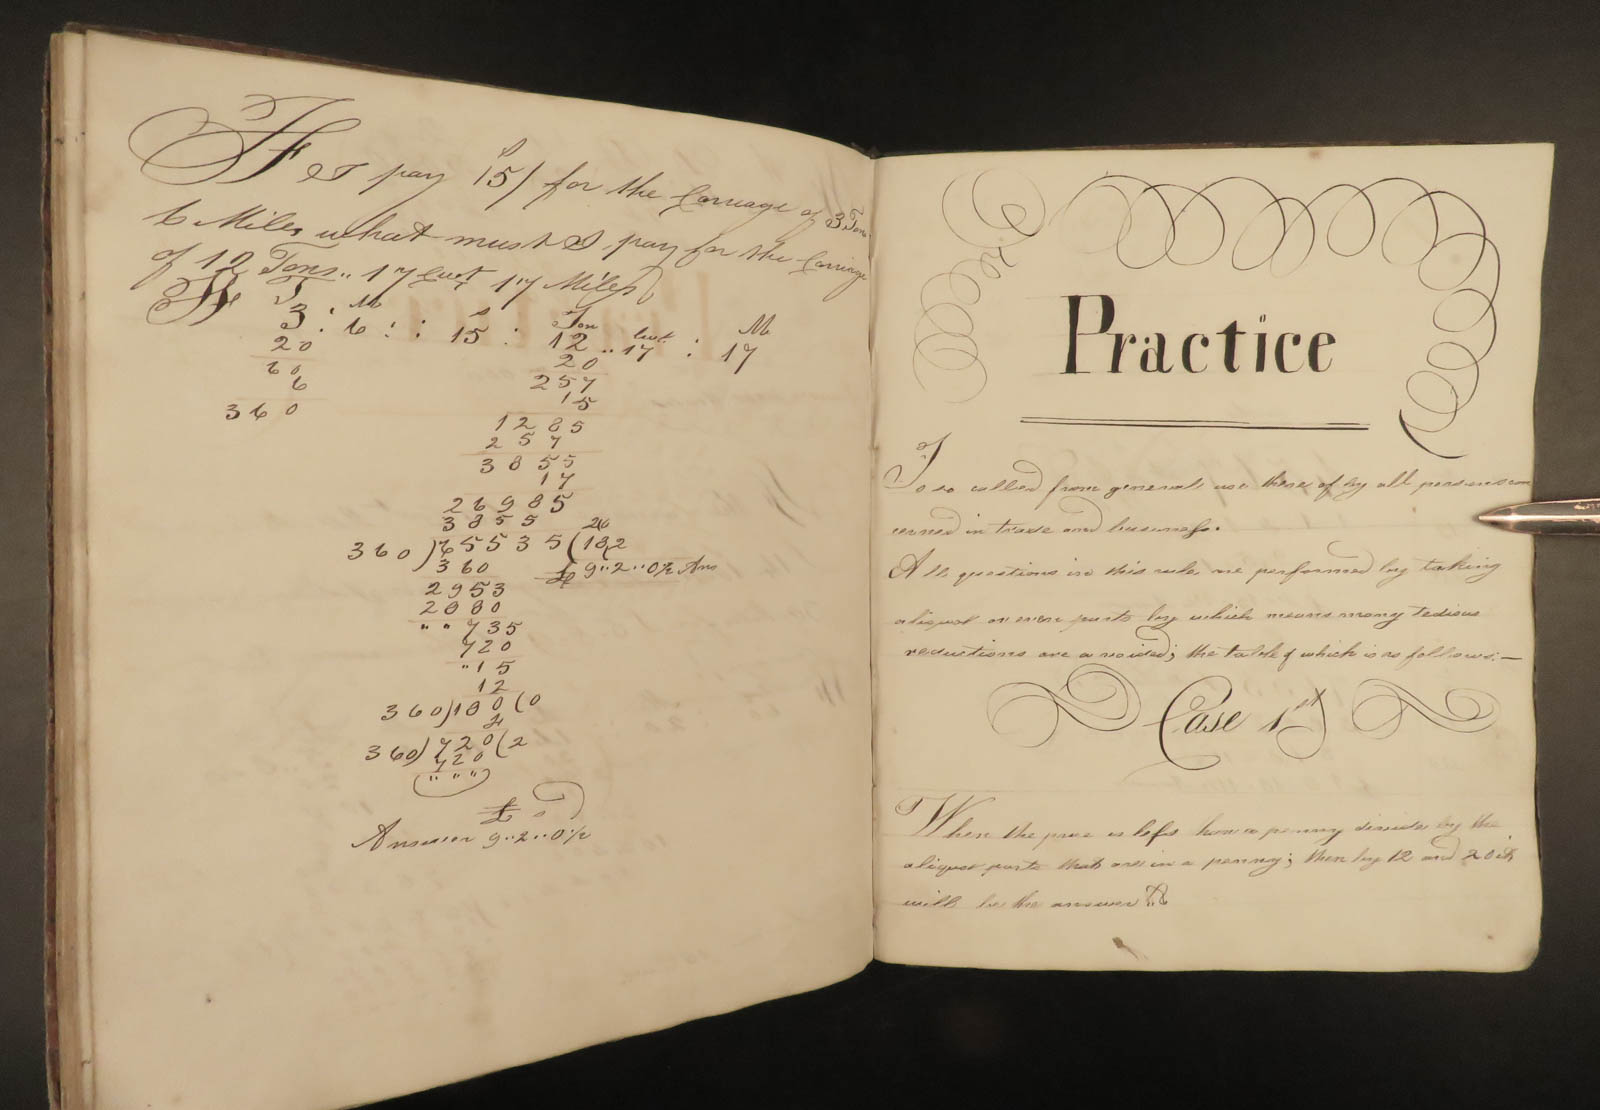 If I pay 15/ for the Carriage of 3 Tons
6 Miles what must I pay for the Carriage
of 12 Tons .. 17 Cwt 17 Miles
If T M s Ton Cwt M
3 : 6 : : 15 : 12 .. 17 : 17
20 20
60 257
6 15
360 1285
257
3855
17
26985
3855 20
360)65535(182
360 £ 9..2..0½ Ans
2953
2880
" " 735
720
" 15
12
360)180(0
4
360)720(2
720
" " "
£ s
Answer 9..2..0½
Practice
Is so called from general use there of by all persons con
cerned in trade and business.
All questions in this rule are performed by taking
aliquot or even parts by which means many tedious
reductions are avoided; the table of which is as follows:—
Case 1st
When the price is less than a penny divide by the
aliquot parts that are in a penny; then by 12 and 20 it
will be the answer